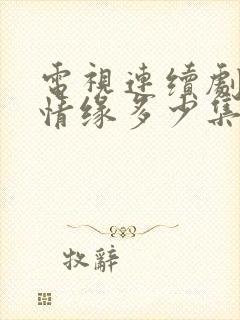 電視連續劇
情缘多少集
牧辭